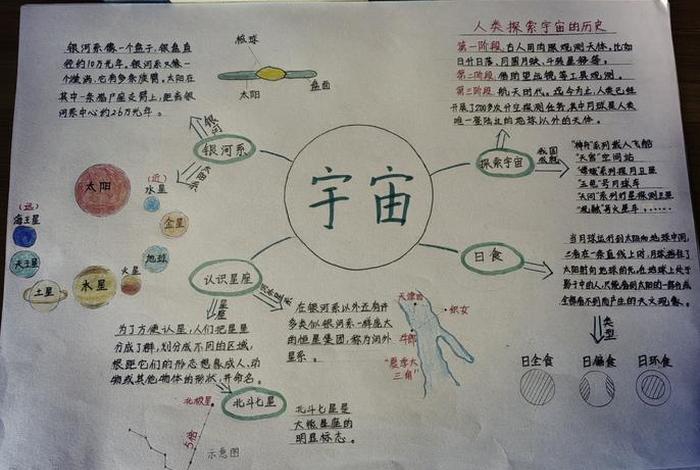 银河系像一个盘子,银盘直
径约10万光年。银河系又像一
个漩涡,它有多条旋臂,太阳在
其中一条猎户座旋臂上,距离银
河系中心约2.6万光年。
核球
太阳
盘面
人类探索宇宙的历史
第一阶段:古人用肉眼观测天体,比如
日升日落、月圆月缺、斗转星移等。
第二阶段:借助望远镜等工具观测。
第三阶段:航天时代。迄今为止,人类已经
开展了200多次升空探测任务,其中月球是人类
唯一登陆的地球以外的天体。
银河
银河系
太阳系
宇宙
探索宇宙
我国成就
"神舟"系列载人飞船
"天宫"空间站
"嫦娥"系列探月卫星
"玉兔"号月球车
"天问"系列行星探测卫星
"祝融"号火星车,……
太阳
(近)
水星
金星
地球
火星
木星
土星
天王星
海王星
(远)
日食
当月球运行到太阳和地球中间,
三者在一条直线上时,月球挡住了
太阳射向地球的光,在地球上处于
影子中的人,只能看到太阳的一部分或
全部看不到而产生的天文现象。
类型
日全食
日偏食
日环食
认识星座
星座
河外星系
为了方便认星,人们把星星
分成了群,划分成不同的区域,
根据它们的形态想象成人、动
物或其他物体的形状,并命名。
在银河系以外还有许
多类似银河系一样庞大
的恒星集团,称为河外
星系。
天津四
织女
牛郎
"夏季大
三角"
北斗七星
北极星
5倍
示意图
北斗七星是
大熊星座的
明显标志。